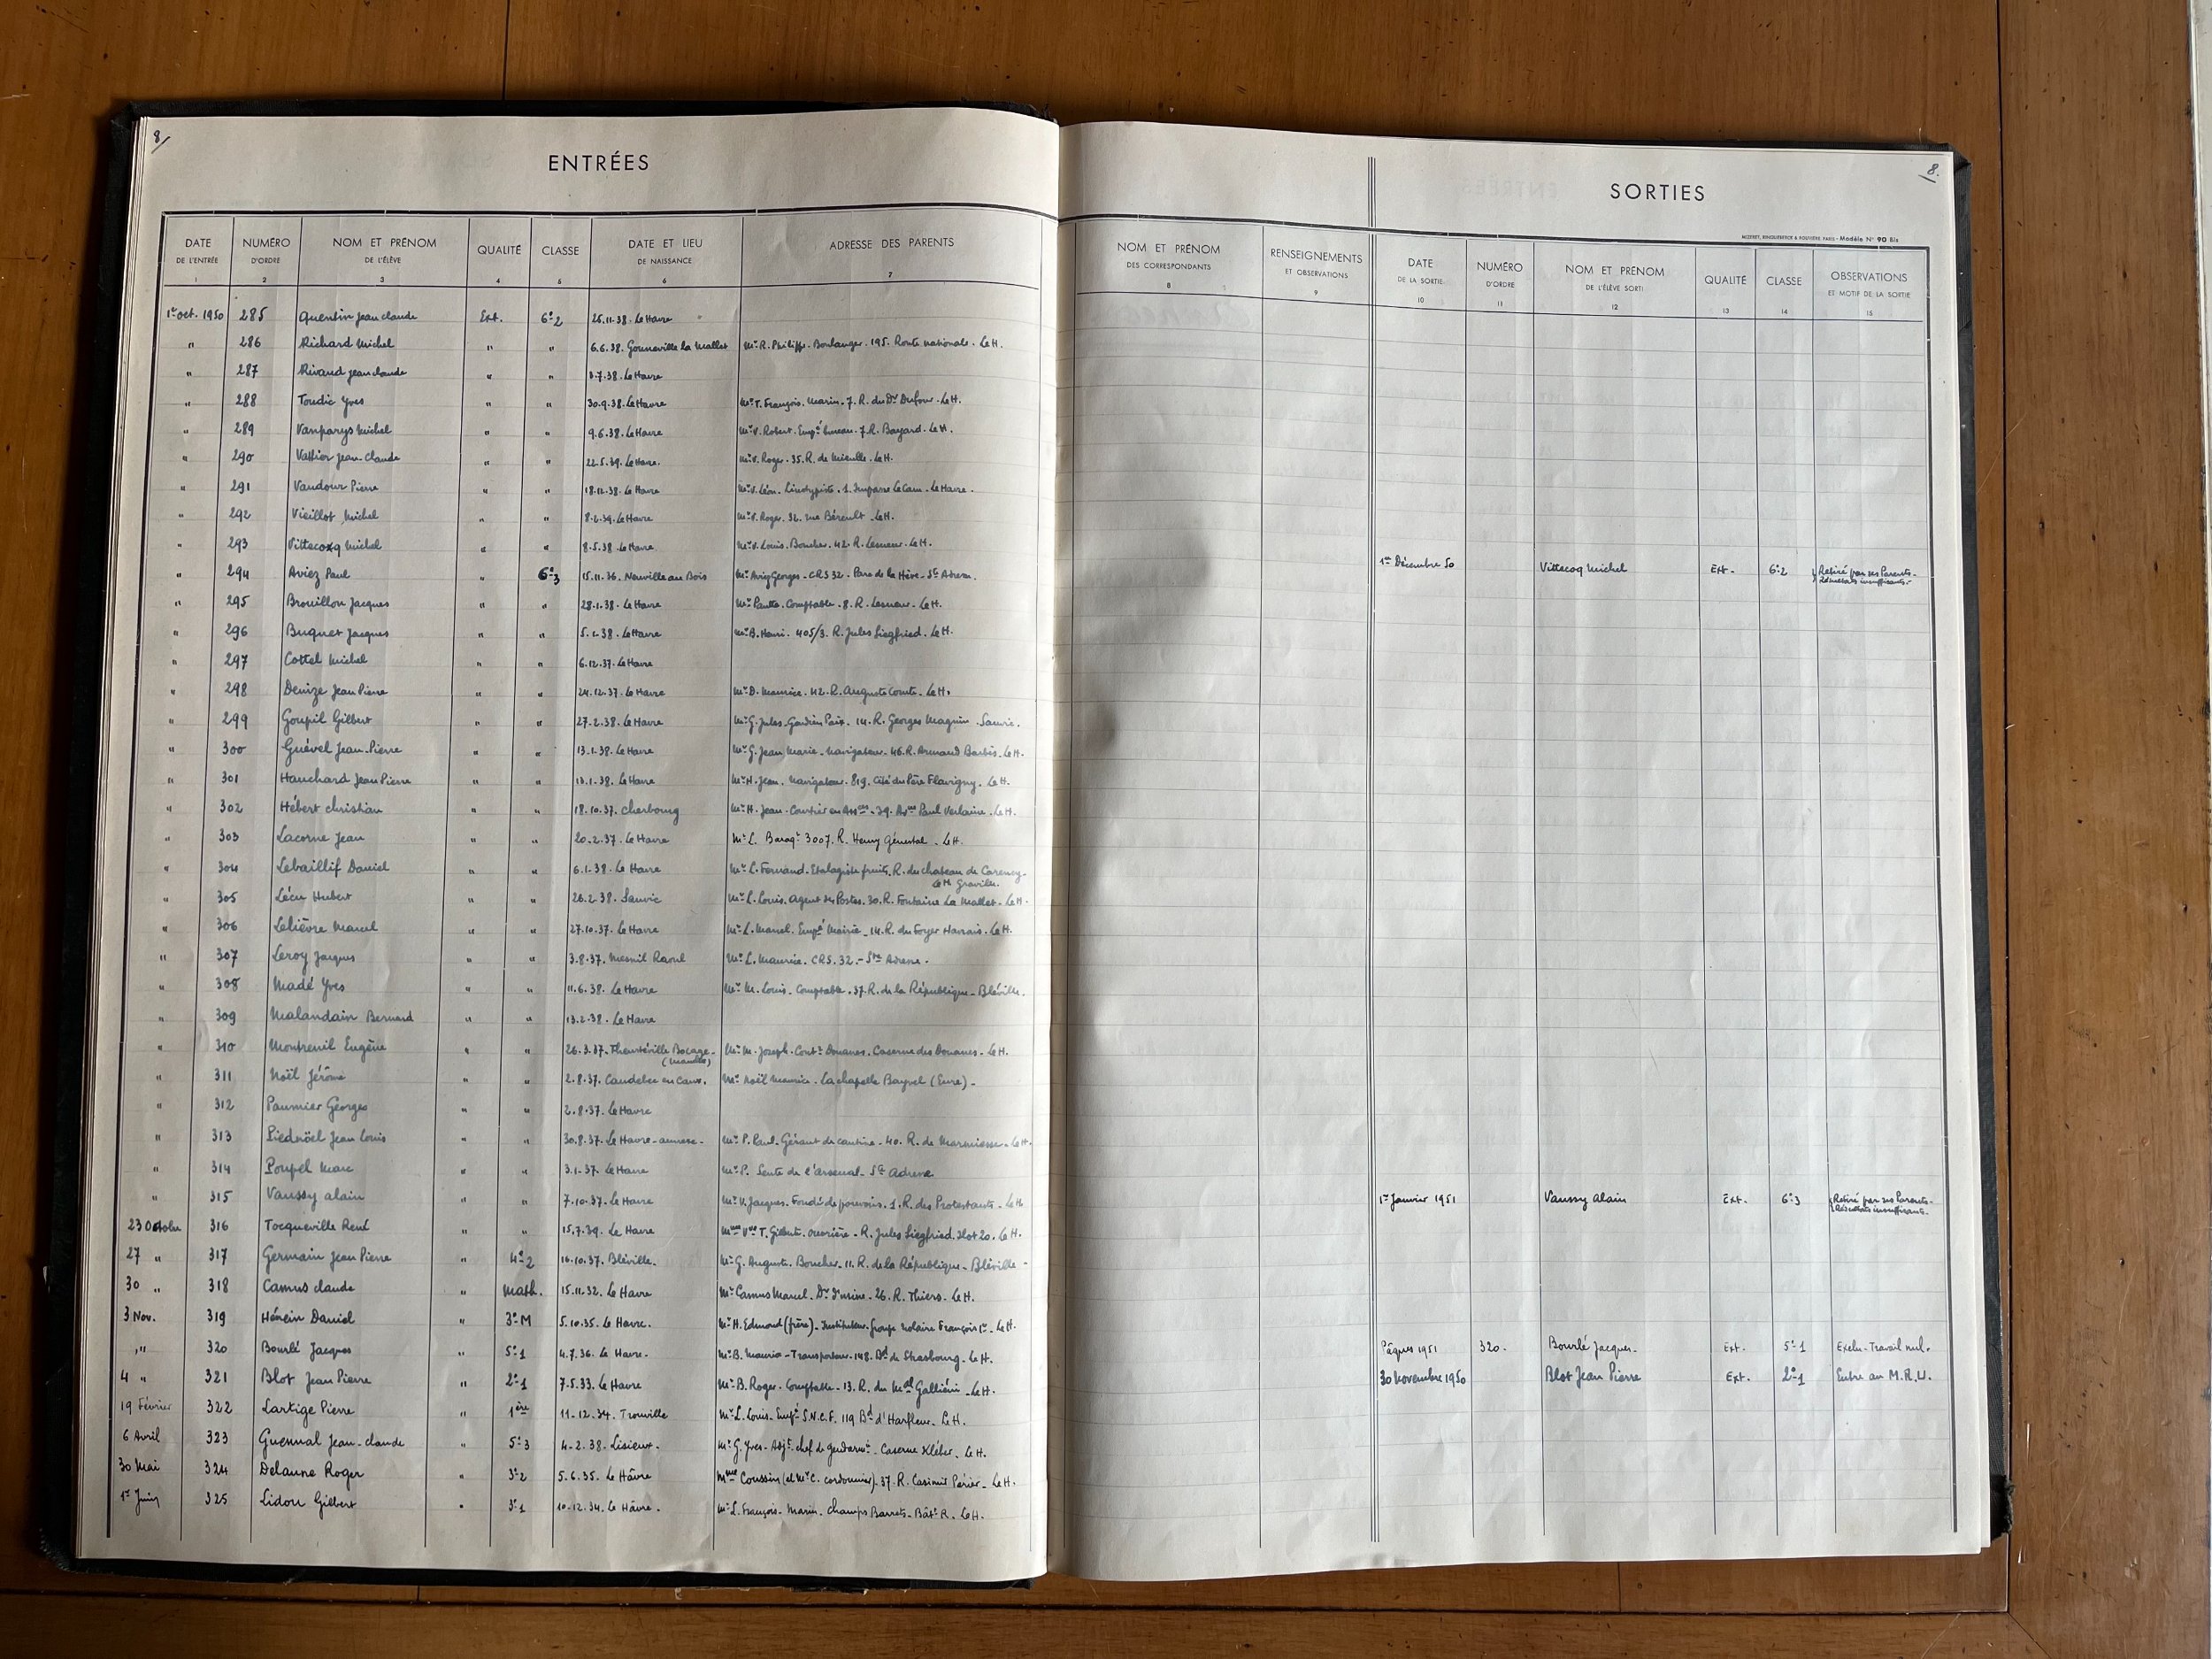 8/
ENTRÉES
DATE DE L'ENTRÉE 1 NUMÉRO D'ORDRE 2 NOM ET PRÉNOM DE L'ÉLÈVE 3 QUALITÉ 4 CLASSE 5 DATE ET LIEU DE NAISSANCE 6 ADRESSE DES PARENTS 7
1er oct. 1950 285 Quentin Jean claude Ext. 6e2 26.11.38. Le Havre
" 286 Richard Michel " " 6.6.38. Gonneville la Mallet Mr R. Philippe. Boulanger. 195. Route nationale. Le H.
" 287 Rivaud Jean claude " " 3.7.38. Le Havre
" 288 Toudic Yves " " 30.9.38. Le Havre Mr T. François. Marin. 7. R. du Dr Dufour. Le H.
" 289 Vanparys Michel " " 9.6.38. Le Havre Mr V. Robert. Empé bureau. 7. R. Bayard. Le H.
" 290 Vattier Jean-Claude " " 22.5.39. Le Havre. Mr V. Roger. 35. R. de Mieulle. Le H.
" 291 Vaudour Pierre " " 18.12.38. Le Havre Mr V. Léon. Linotypiste. 1. Impasse Le Cam. Le Havre.
" 292 Vieillot Michel " " 8.2.39. Le Havre Mr V. Roger. 32. rue Bérault. Le H.
" 293 Vittecoq Michel " " 8.5.38 Le Havre Mr V. Louis. Boucher. 42. R. Lesueur. Le H.
" 294 Aviez Paul " 6e3 15.11.36. Neuville au Bois Mr Aviez Georges. CRS 32. Parc de la Hève. Ste Adresse.
" 295 Brouillon Jacques " " 28.1.38. Le Havre Mr Comptable. 8. R. Lesueur. Le H.
" 296 Buquet Jacques " " 5.2.38. Le Havre Mr B. Henri. 405/3. R. Jules Siegfried. Le H.
" 297 Cottel Michel " " 6.12.37. Le Havre
" 298 Denize Jean Pierre " " 24.12.37. Le Havre Mr D. Maurice. 42. R. Auguste Comte. Le H.
" 299 Goupil Gilbert " " 27.2.38. Le Havre Mr G. Jules. Gardien Paix. 14. R. Georges Maguin. Sanvic.
" 300 Guével Jean-Pierre " " 13.1.38. Le Havre Mr G. Jean Marie. Navigateur. 46. R. Armand Barbès. Le H.
" 301 Hauchard Jean Pierre " " 13.1.38. Le Havre Mr H. Jean. Navigateur. 819. Cité du Père Flavigny. Le H.
" 302 Hébert christian " " 18.10.37. Cherbourg Mr H. Jean. Courtier en Assces. 39. Avue Paul Verlaine. Le H.
" 303 Lacorne Jean " " 20.2.37. Le Havre Mr L. Baraqt 3007. R. Henry Génestal. Le H.
" 304 Lebaillif Daniel " " 6.1.38. Le Havre Mr L. Fernand. Etalagiste fruits. R. du chateau de Carency.
Le H. Graville.
" 305 Lécu Hubert " " 26.2.38. Sanvic Mr L. Louis. Agent des Postes. 30. R. Fontaine La Mallet. Le H.
" 306 Lelièvre Marcel " " 27.10.37. Le Havre Mr L. Marcel. Empé Mairie. 14. R. du Foyer Havrais. Le H.
" 307 Leroy Jacques " " 3.8.37. Mesnil Raoul Mr L. Maurice. CRS. 32. Ste Adresse.
" 308 Madé Yves " " 11.6.38. Le Havre Mr M. Louis. Comptable. 37. R. de la République. Bléville.
" 309 Malandain Bernard " " 13.2.38. Le Havre
" 310 Montreuil Eugène " " 26.3.37. Theurtéville Bocage. Mr M. Joseph. Contr Douanes. Caserne des Douanes. Le H.
(Manche)
" 311 Noël Jérôme " " 2.8.37. Caudebec en Caux. Mr Noël Maurice. La chapelle Bayvel (Eure).
" 312 Paumier Georges " " 2.8.37. Le Havre
" 313 Piednöel Jean Louis " " 30.8.37. Le Havre Mr P. Paul. Gérant de cantine. 40. R. de Le H.
" 314 Poupel Marc " " 3.1.37. Le Havre Mr P. Sente de l'arsenal. Ste Adresse
" 315 Vaussy alain " " 7.10.37. Le Havre Mr V. Jacques. Fondé de pouvoirs. 1. R. des Protestants. Le H.
23 Octobre 316 Tocqueville René " " 15.7.39. Le Havre Mme Vve T. Gilberte. ouvrière. R. Jules Siegfried. Ilot 20. Le H.
27 " 317 Germain Jean Pierre " 4e2 16.10.37. Bléville. Mr G. Auguste. Boucher. 11. R. de la République. Bléville
30 " 318 Camus claude " Math. 15.11.32. Le Havre Mr Camus Marcel. Dr d'usine. 26. R. Thiers. Le H.
3 Nov. 319 Hénein Daniel " 3e M 5.10.35. Le Havre. Mr H. Edmond (frère). Instituteur. Groupe scolaire François 1er. Le H.
" 320 Bourlé Jacques " 5e1 4.7.36. Le Havre. Mr B. Maurice. Transporteur. 148. Bd de Strasbourg. Le H.
4 " 321 Blot Jean Pierre " 2e1 7.5.33. Le Havre Mr B. Roger. Comptable. 13. R. du Mal Galliéni. Le H.
19 Février 322 Lartige Pierre " 1ère 11.12.34. Trouville Mr L. Louis. Empé S.N.C.F. 119 Bd d'Harfleur. Le H.
6 Avril 323 Guennal Jean-claude " 5e3 4.2.38. Lisieux. Mr G. Yves. Adjt chef de gendarmie. Caserne Kléber. Le H.
30 Mai 324 Delaune Roger " 3e2 5.6.35. Le Hâvre Mme Coussin (et Mr C. cordonnier). 37. R. Casimir Périer. Le H.
1er Juin 325 Lidou Gilbert " 3e1 10.12.34. Le Hâvre. Mr L. François. Marin. Champs Barrets. Bâtt R. Le H.
8.
SORTIES
MODÈLE N° 90 Bis
NOM ET PRÉNOM DES CORRESPONDANTS 8 RENSEIGNEMENTS ET OBSERVATIONS 9 DATE DE LA SORTIE 10 NUMÉRO D'ORDRE 11 NOM ET PRÉNOM DE L'ÉLÈVE SORTI 12 QUALITÉ 13 CLASSE 14 OBSERVATIONS ET MOTIF DE LA SORTIE 15
1er Décembre 50 Vittecoq Michel Ext. 6e2 Retiré par ses Parents.
Résultats insuffisants.
1er Janvier 1951 Vaussy Alain Ext. 6e3 Retiré par ses Parents.
Résultats insuffisants.
Pâques 1951 320. Bourlé Jacques. Ext. 5e1 Exclu. Travail nul.
30 Novembre 1950 Blot Jean Pierre Ext. 2e1 Entre au M.R.U.